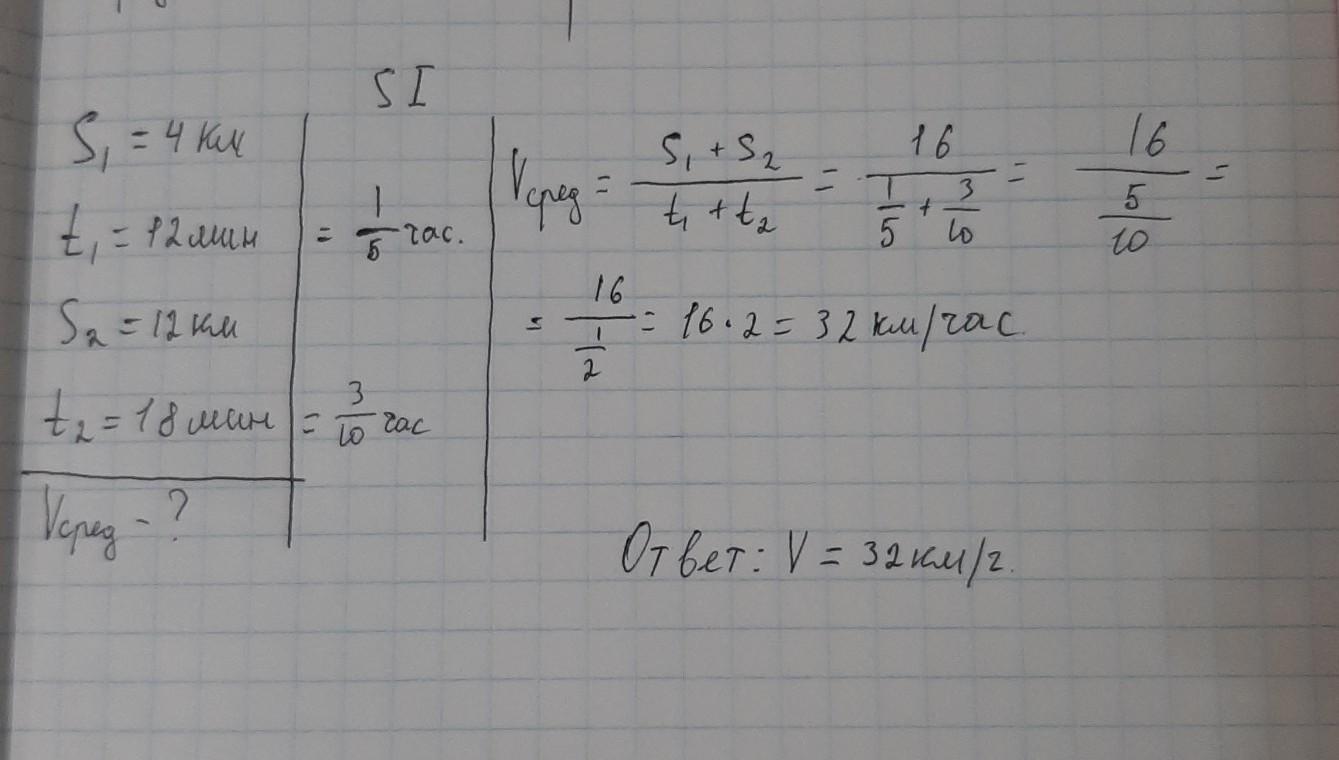 SI
S₁ = 4 км
t₁ = 12 мин = 1/5 час.
S₂ = 12 км
t₂ = 18 мин = 3/10 час
Vсред - ?
Vсред = (S₁ + S₂)/(t₁ + t₂) = 16/(1/5 + 3/10) = 16/(5/10) =
= 16/(1/2) = 16 · 2 = 32 км/час.
Ответ: V = 32 км/г.